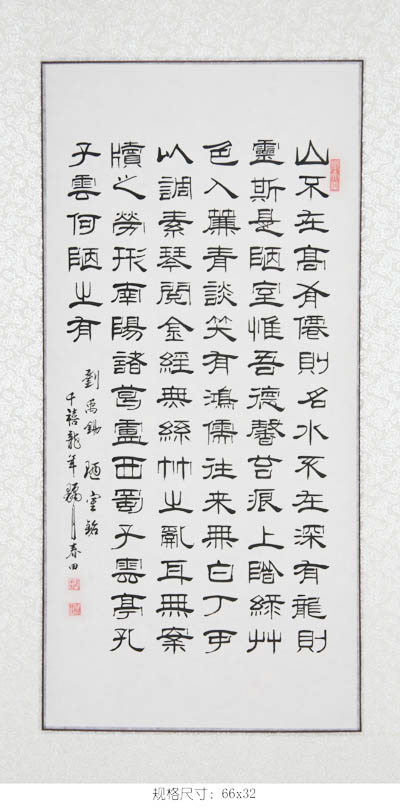 山不在高有僊則名水不在深有龍則
靈斯是陋室惟吾德馨苔痕上階綠艸
色入簾青談笑有鴻儒往来無白丁可
以調素琴閱金經無絲竹之亂耳無案
牘之勞形南陽諸葛盧西蜀子雲亭孔
子雲何陋之有
劉禹錫 陋室銘
千禧龍年 春田
规格尺寸：66x32